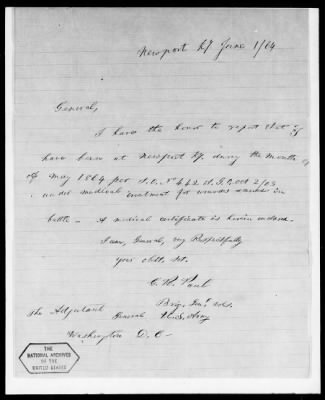 Newport Ky June 1/64
General,
I have the honor to report that I
have been at Newport Ky. during the month
of May 1864 per S.O. No 442 A.G.O. Oct 2/63
under medical treatment for wounds received in
battle - A medical certificate is herein enclosed.
I am, General, very Respectfully
your obdt. svt.
G. R. Paul
Brig. Genl Vols.
The Adjutant General U.S. Army
Washington D. C -
THE
NATIONAL ARCHIVES
OF THE
UNITED STATES